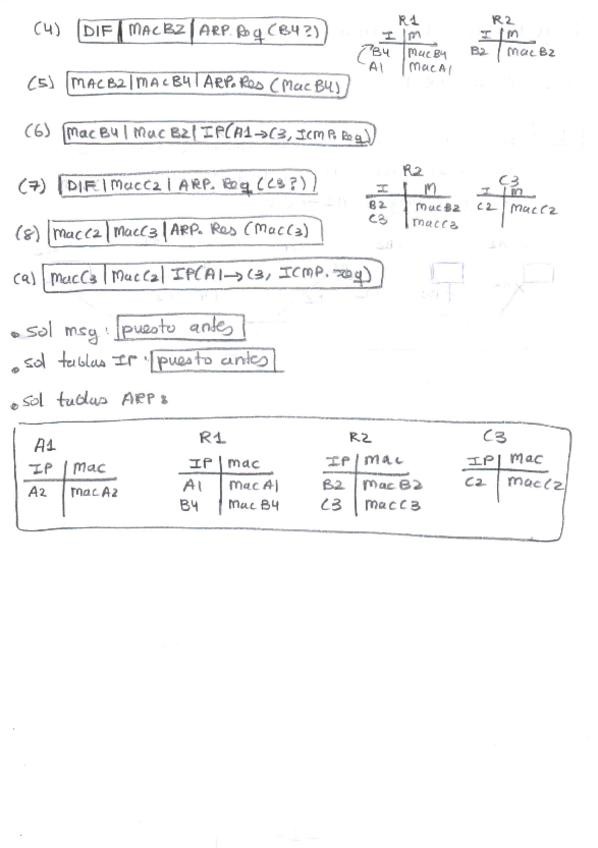 (4) DIF | MACB2 | ARP. Req (B4?)
R1
I | M
B4 | MacB4
A1 | MacA1
R2
I | M
B2 | MacB2
(5) MACB2 | MACB4 | ARP. Res (MacB4)
(6) MacB4 | MacB2 | IP(A1→C3, ICMP. Req)
(7) DIF | MacC2 | ARP. Req (C3?)
R2
I | M
B2 | MacB2
C3 | MacC3
C3
I | M
C2 | MacC2
(8) MacC2 | MacC3 | ARP. Res (MacC3)
(9) MacC3 | MacC2 | IP(A1→C3, ICMP. req)
• sol msg: puesto antes
• sol tablas IP: puesto antes
• sol tablas ARP:
A1 R1 R2 C3
IP | Mac IP | mac IP | mac IP | Mac
A2 | macA2 A1 | macA1 B2 | macB2 C2 | macC2
B4 | MacB4 C3 | MacC3